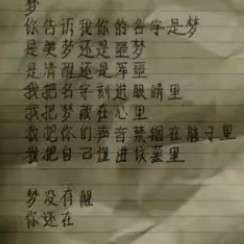 梦
你告诉我你的名字是梦
是美梦还是噩梦
是清醒还是荤噩
我把名字刻进眼睛里
我把梦藏在心里
我把你们声音禁锢在脖子里
我把自己埋进坟墓里
梦没有醒
你还在